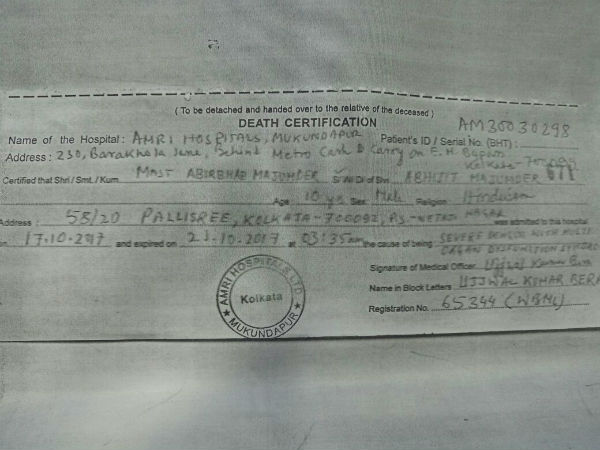 ( To be detached and handed over to the relative of the deceased )
DEATH CERTIFICATION
Name of the Hospital : AMRI HOSPITALS, MUKUNDAPUR Patient's ID / Serial No. (BHT) : AM30030298
Address : 230, Barakhola Lane, Behind Metro Cash & Carry on E. M. Bypass
Kolkata-700099
Certified that Shri / Smt. / Kum. MAST ABIRBHAB MAJUMDER S/W/D/ of Shri ABHIJIT MAJUMDER
Age 10 yrs Sex Male Religion Hinduism
Address : 58/20 PALLISREE, KOLKATA-700092, P.S.-NETAJI NAGAR was admitted to this hospital
on 17.10.2017 and expired on 21.10.2017 at 03:35am the cause of being SEVERE DENGUE WITH MULTI
ORGAN DYSFUNCTION SYNDROME
Signature of Medical Officer Ujjwal Kumar Bera
Name in Block Letters UJJWAL KUMAR BERA
Registration No. 65344 (WBMC)
AMRI HOSPITALS LTD.
Kolkata
★ MUKUNDAPUR ★